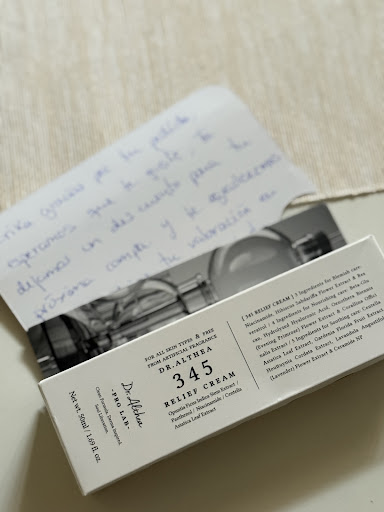 gracias por tu pedido
esperamos que te guste. te
dejamos un descuento para tu
próxima compra y te agradecemos
tu valoración en
FOR ALL SKIN TYPES & FREE
FROM ARTIFICIAL FRAGRANCE
DR.ALTHEA
345
RELIEF CREAM
Opuntia Ficus-Indica Stem Extract /
Panthenol / Niacinamide / Centella
Asiatica Leaf Extract
Dr.Althea
-PRO LAB-
Clean Formula, Derma-Inspired,
Seoul Laboratory.
Net wt. 50ml / 1.69 fl. oz.
[ 345 RELIEF CREAM ] 3 Ingredients for Blemish care:
Niacinamide, Hibiscus Sabdariffa Flower Extract & Res
veratrol / 4 Ingredients for Nourishing care: Beta-Glu
can, Hydrolyzed Hyaluronic Acid, Oenothera Biennis
(Evening Primrose) Flower Extract & Coccinia Offici
nalis Extract / 5 Ingredients for Soothing care: Centella
Asiatica Leaf Extract, Gardenia Florida Fruit Extract,
Houttuynia Cordata Extract, Lavandula Angustifol
(Lavender) Flower Extract & Ceramide NP